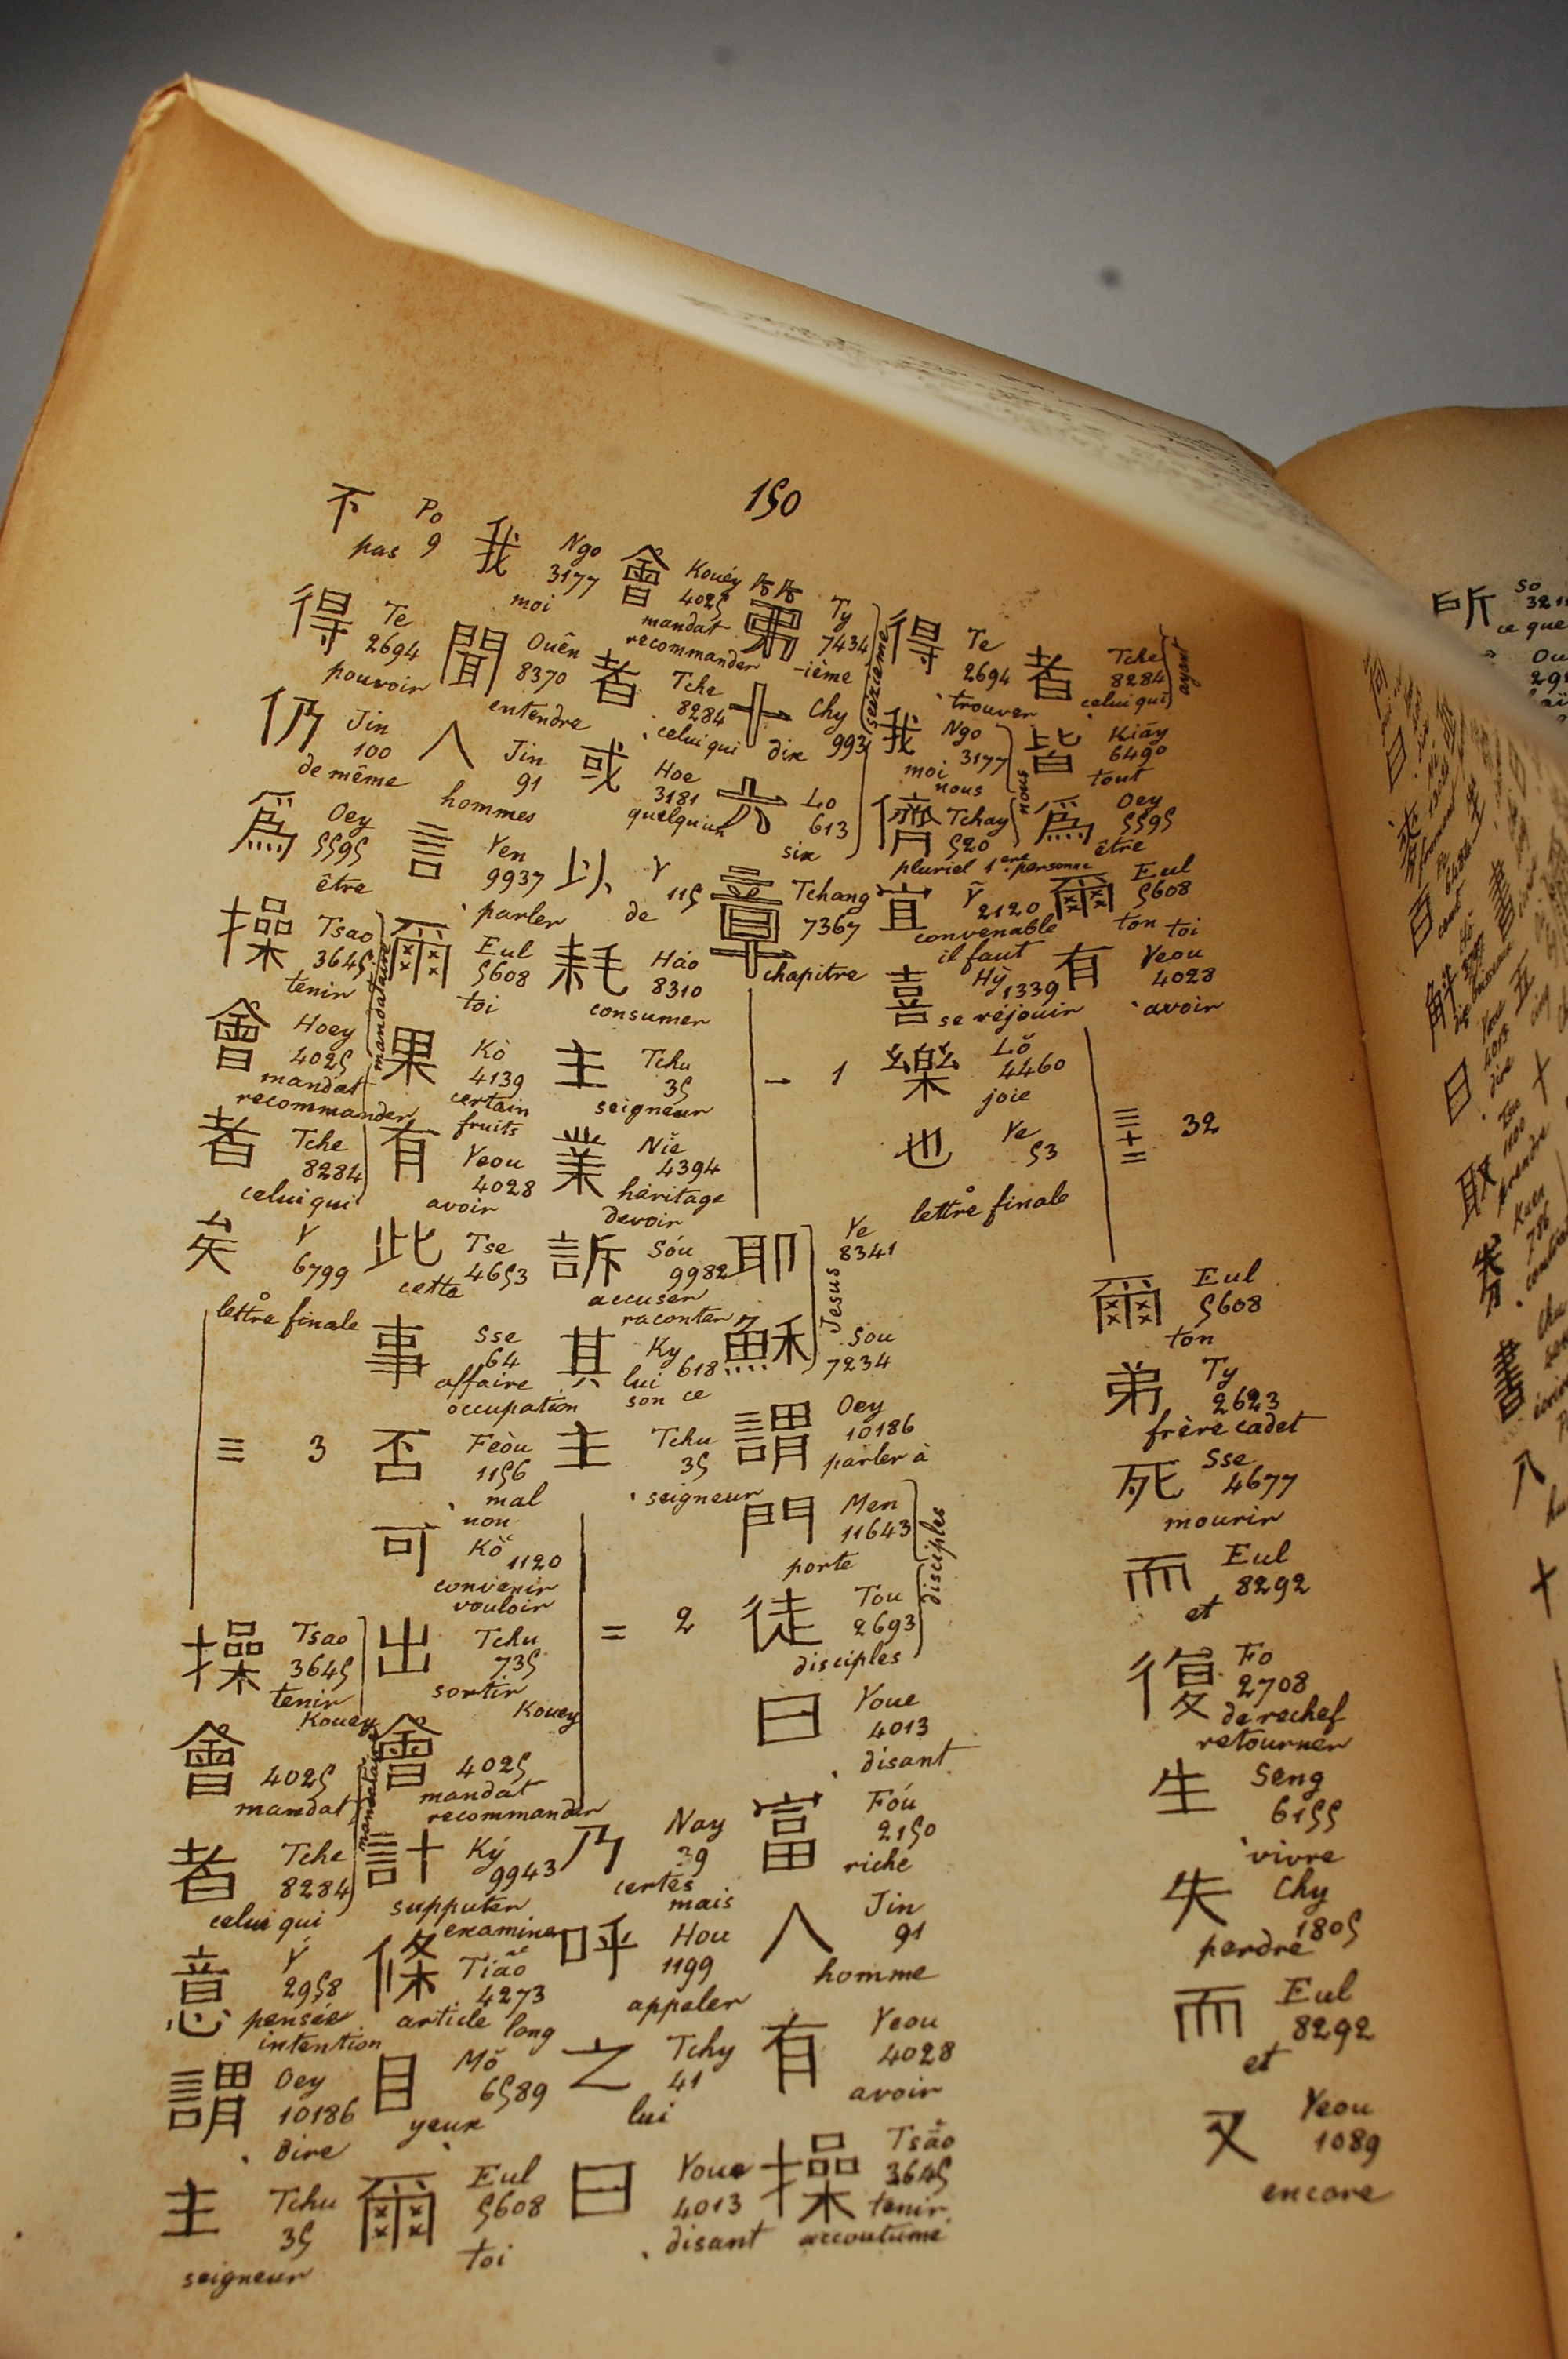 150
者 Tche 8284 celui qui
ayant
皆 Kiāy 6490 tout
爲 Oey 5595 être
爾 Eul 5608 ton toi
有 Yeou 4028 avoir
三十二 32
爾 Eul 5608 ton
弟 Ty 2623 frère cadet
死 Sse 4677 mourir
而 Eul 8292 et
復 Fo 2708 derechef retourner
生 Seng 6155 vivre
失 Chy 1805 perdre
而 Eul 8292 et
又 Yeou 1089 encore
得 Te 2694 trouver
我 Ngo 3177 moi nous
儕 Tchay 520 pluriel 1ere personne
nous
宜 Ȳ 2120 convenable il faut
喜 Hỳ 1339 se réjouir
樂 Lŏ 4460 joie
也 Ye 53 lettre finale
第 Ty 7434 -ième
十 Chy 993 dix
seizième
六 Lo 613 six
章 Tchang 7367 chapitre
一 1
耶 Ye 8341
穌 Sou 7234
Jesus
謂 Oey 10186 parler à
門 Men 11643 porte
徒 Tou 2693 disciples
disciples
曰 Youe 4013 disant
富 Fóu 2150 riche
人 Jin 91 homme
有 Yeou 4028 avoir
操 Tsăo 3645 tenir accoutumé
會 Kouéy 4025 mandat recommander
者 Tche 8284 celui qui
或 Hoe 3181 quelqu'un
以 Y 115 de
耗 Háo 8310 consumer
主 Tchu 35 seigneur
業 Niĕ 4394 héritage devoir
訴 Sóu 9982 accuser raconter
其 Ky 618 lui son ce
主 Tchu 35 seigneur
二 2
乃 Nay 39 certes mais
呼 Hou 1199 appeler
之 Tchy 41 lui
曰 Youe 4013 disant
我 Ngo 3177 moi
聞 Ouên 8370 entendre
人 Jin 91 hommes
言 Yen 9937 parler
爾 Eul 5608 toi
果 Kò 4139 certain fruits
有 Yeou 4028 avoir
此 Tse 4653 cette
事 Sse 64 affaire occupation
否 Feòu 1156 mal non
可 Kŏ 1120 convenir vouloir
出 Tchu 735 sortir
會 Kouey 4025 mandat recommander
計 Ký 9943 supputer examiner
條 Tiāo 4273 article long
目 Mŏ 6589 yeux
爾 Eul 5608 toi
不 Po 9 pas
得 Te 2694 pouvoir
仍 Jin 100 de même
爲 Oey 5595 être
操 Tsao 3645 tenir
會 Hoey 4025 mandat recommander
者 Tche 8284 celui qui
mandataire
矣 Y 6799 lettre finale
三 3
操 Tsao 3645 tenir
會 Kouey 4025 mandat
者 Tche 8284 celui qui
mandataire
意 Ý 2958 pensée intention
謂 Oey 10186 dire
主 Tchu 35 seigneur
所 So ce que